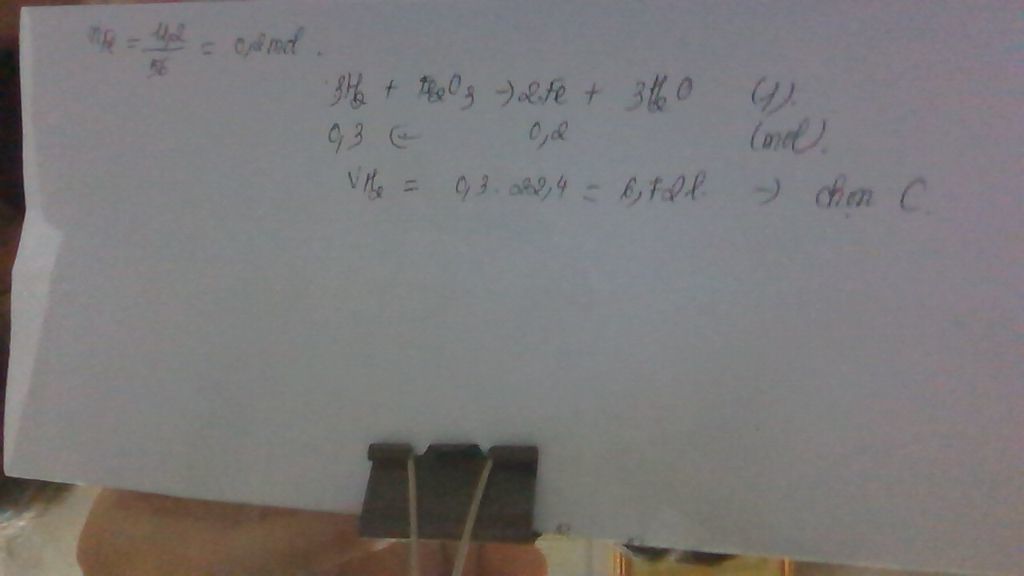 nFe = 11,2/56 = 0,2 mol.
3H2 + Fe2O3 → 2Fe + 3H2O (1).
0,3 ← 0,2 (mol).
VH2 = 0,3 . 22,4 = 6,72l. → chọn C.